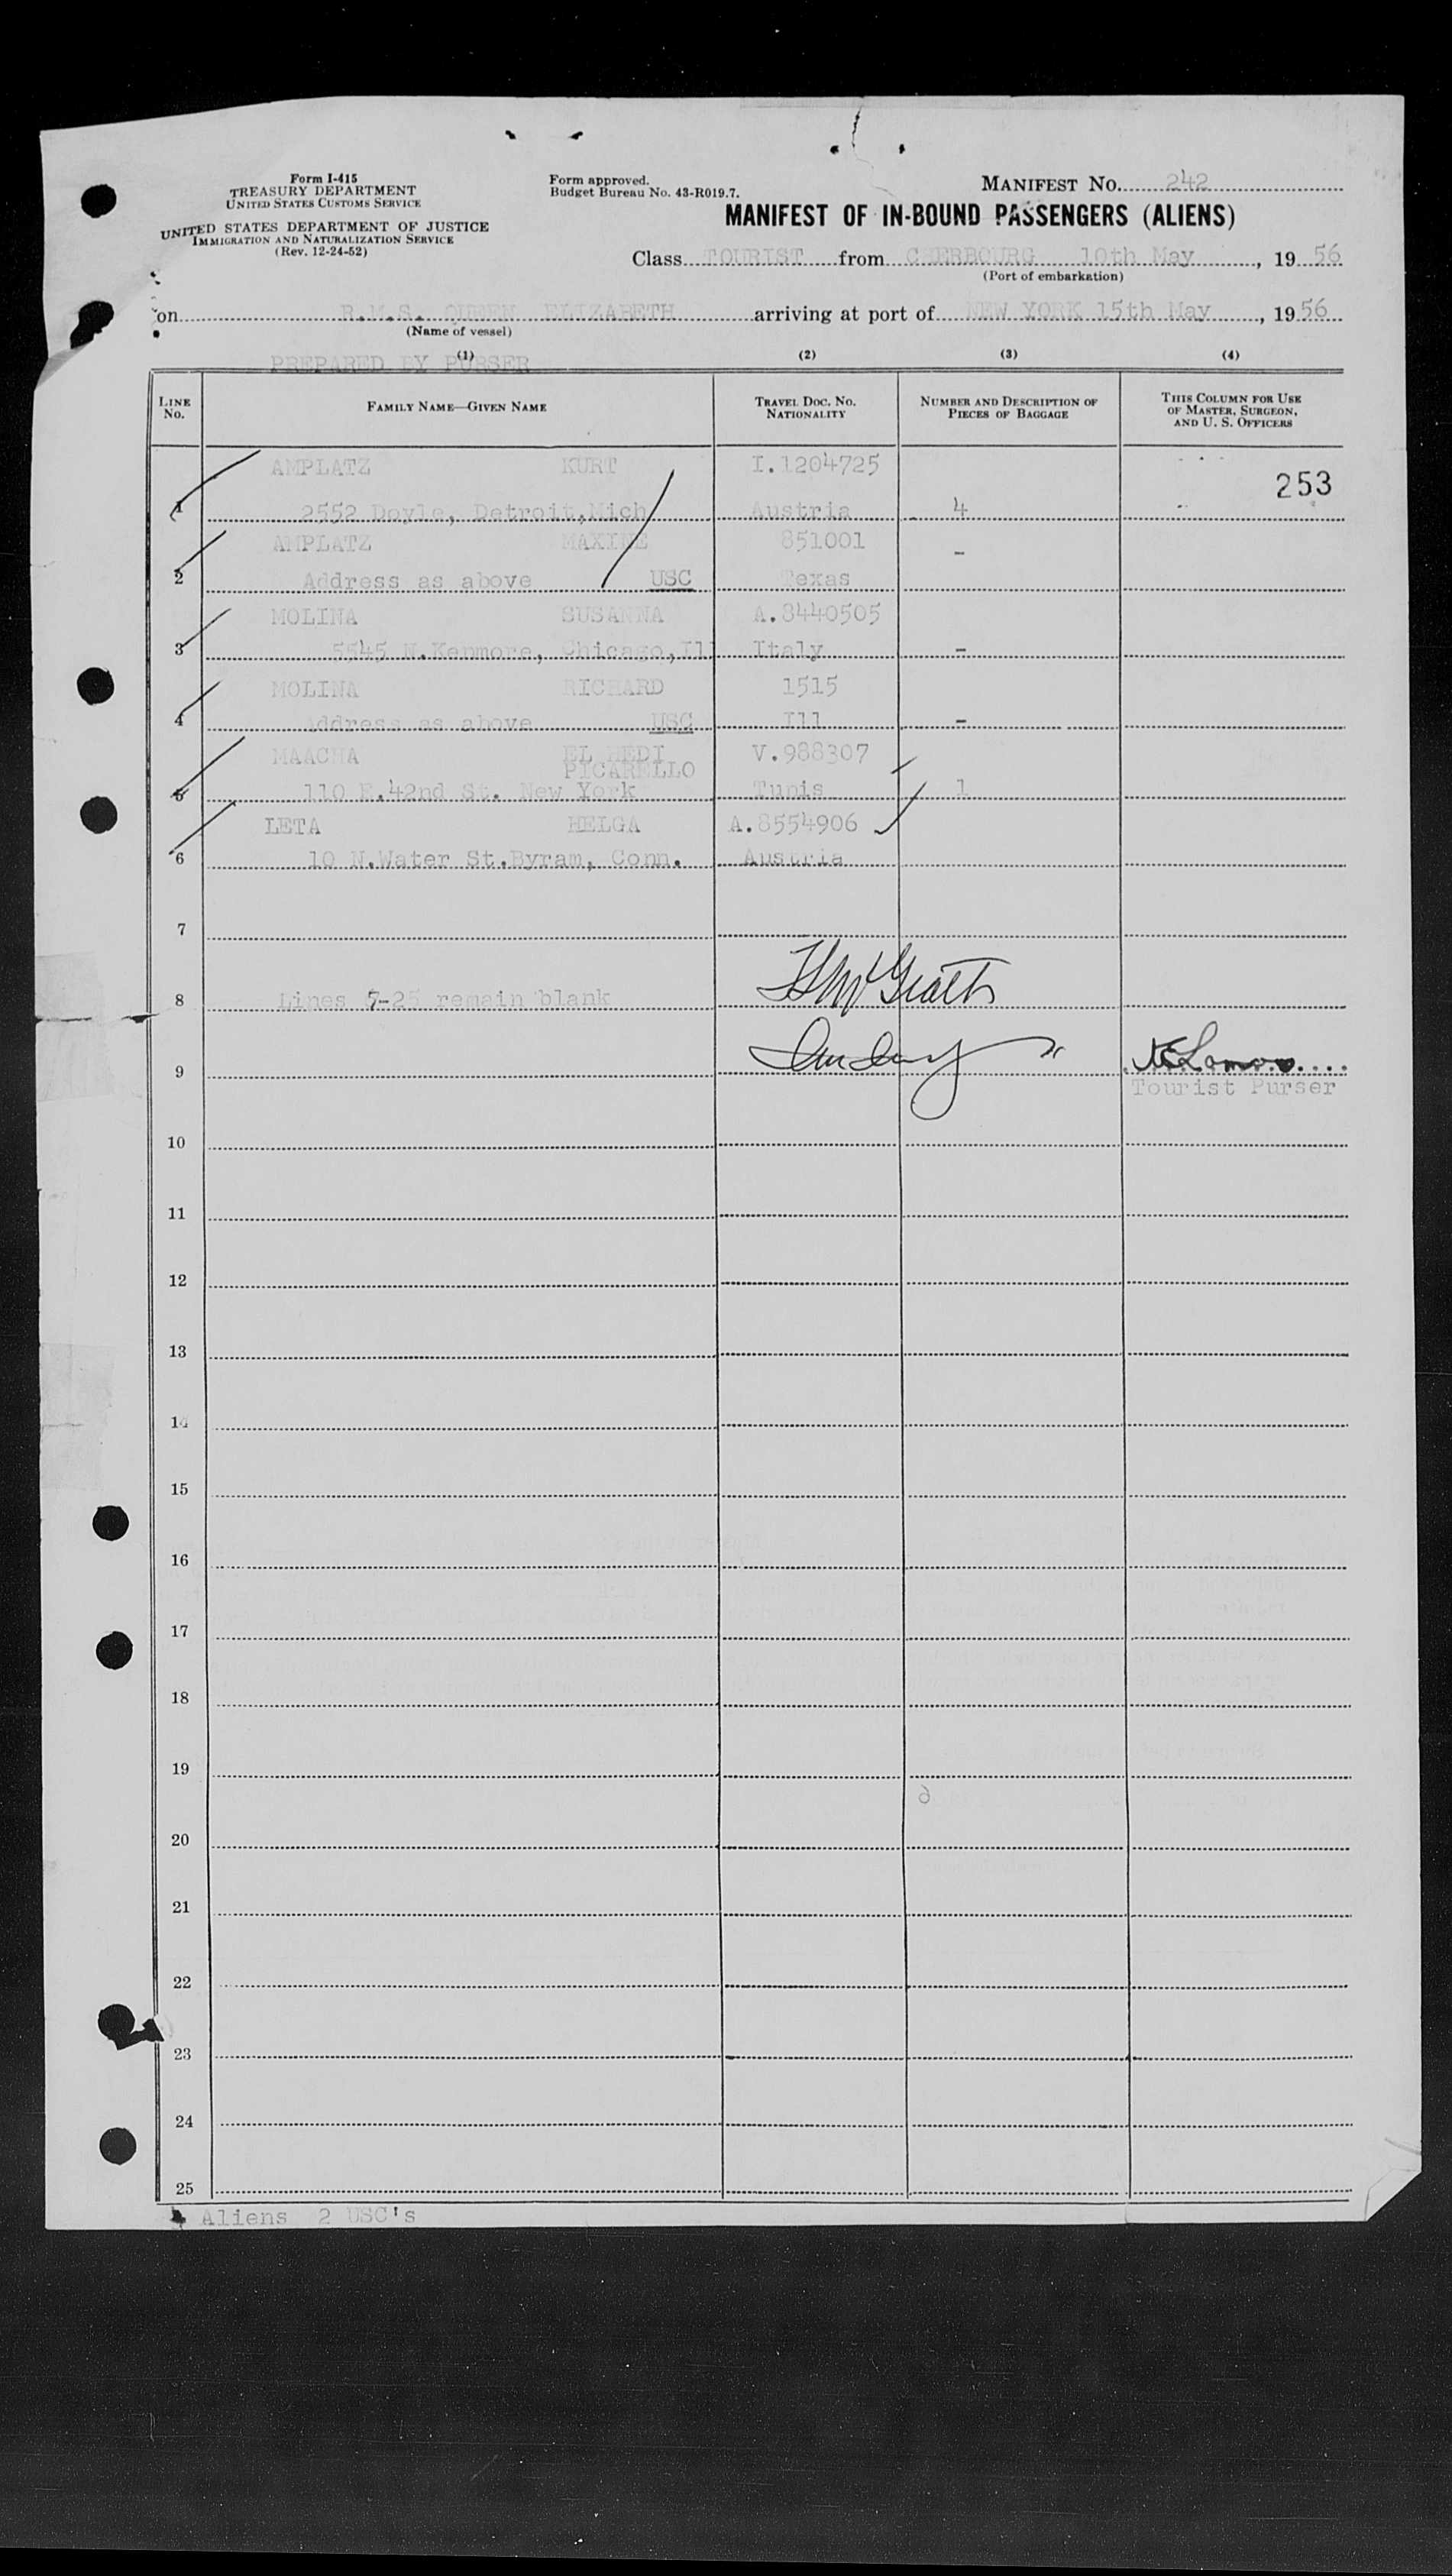 Form I-415
TREASURY DEPARTMENT
UNITED STATES CUSTOMS SERVICE
UNITED STATES DEPARTMENT OF JUSTICE
IMMIGRATION AND NATURALIZATION SERVICE
(Rev. 12-24-52)
Form approved.
Budget Bureau No. 43-R019.7.
MANIFEST NO. 242
MANIFEST OF IN-BOUND PASSENGERS (ALIENS)
Class TOURIST from CHERBOURG 10th May, 1956
(Port of embarkation)
on R.M.S. QUEEN ELIZABETH arriving at port of NEW YORK 15th May, 1956
(Name of vessel)
(1) (2) (3) (4)
PREPARED BY PURSER
LINE No. FAMILY NAME—GIVEN NAME TRAVEL DOC. NO. NATIONALITY NUMBER AND DESCRIPTION OF PIECES OF BAGGAGE THIS COLUMN FOR USE OF MASTER, SURGEON, AND U. S. OFFICERS
AMPLATZ KURT I.1204725 253
1 2552 Doyle, Detroit,Mich Austria 4
AMPLATZ MAXINE 851001 -
2 Address as above USC Texas
MOLINA SUSANNA A.8440505
3 5545 N.Kenmore, Chicago,Ill Italy -
MOLINA RICHARD 1515
4 Address as above USC Ill -
MAACHA EL HEDI V.988307
PICARELLO
5 110 E.42nd St. New York Tunis 1
LETA HELGA A.8554906
6 10 N.Water St.Byram, Conn. Austria
7
8 Lines 7-25 remain blank
9
Tourist Purser
10
11
12
13
14
15
16
17
18
19
20
21
22
23
24
25
4 Aliens 2 USC's